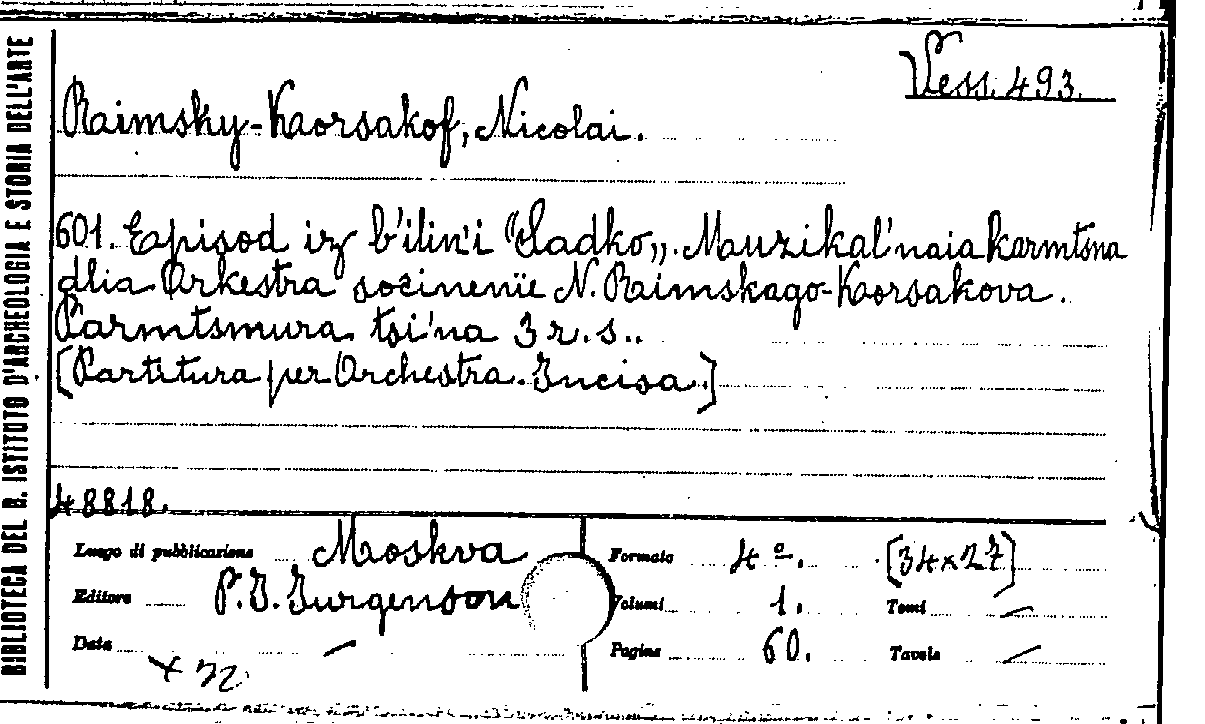 BIBLIOTECA DEL R. ISTITUTO D'ARCHEOLOGIA E STORIA DELL'ARTE
Vess. 493.
Raimsky-Korsakof, Nicolai.
601. Episod iz b'ilin'i "Sadko„. Mauzikal'naia karmtsna
dlia Orkestra sočinenïe N. Raimskago-Korsakova.
Parmtsmura tsi'na 3 r. s..
[Partitura per Orchestra. Incisa.]
48818.
Luogo di pubblicazione Moskva
Editore P. I. Jurgenson
Data —
Formato 4º. [34x27]
Volumi 1. Tomi —
Pagine 60. Tavole —